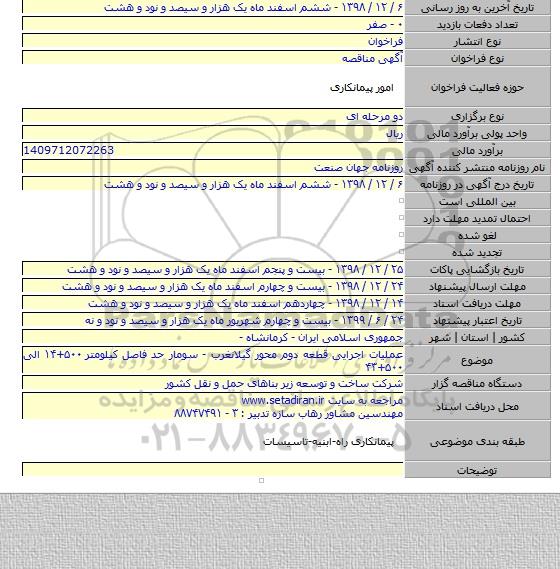 تاریخ آخرین به روز رسانی ۶ / ۱۲ / ۱۳۹۸ - ششم اسفند ماه یک هزار و سیصد و نود و هشت
تعداد دفعات بازدید ۰ - صفر
نوع انتشار فراخوان
نوع فراخوان آگهی مناقصه
حوزه فعالیت فراخوان امور پیمانکاری
نوع برگزاری دو مرحله ای
واحد پولی برآورد مالی ریال
برآورد مالی 1409712072263
نام روزنامه منتشر کننده آگهی روزنامه جهان صنعت
تاریخ درج آگهی در روزنامه ۶ / ۱۲ / ۱۳۹۸ - ششم اسفند ماه یک هزار و سیصد و نود و هشت
بین المللی است
احتمال تمدید مهلت دارد
لغو شده
تجدید شده
تاریخ بازگشایی پاکات ۲۵ / ۱۲ / ۱۳۹۸ - بیست و پنجم اسفند ماه یک هزار و سیصد و نود و هشت
مهلت ارسال پیشنهاد ۲۴ / ۱۲ / ۱۳۹۸ - بیست و چهارم اسفند ماه یک هزار و سیصد و نود و هشت
مهلت دریافت اسناد ۱۴ / ۱۲ / ۱۳۹۸ - چهاردهم اسفند ماه یک هزار و سیصد و نود و هشت
تاریخ اعتبار پیشنهاد ۲۴ / ۶ / ۱۳۹۹ - بیست و چهارم شهریور ماه یک هزار و سیصد و نود و نه
کشور | استان | شهر جمهوری اسلامی ایران - کرمانشاه -
موضوع عملیات اجرایی قطعه دوم محور گیلانغرب - سومار حد فاصل کیلومتر ۵۰۰+۱۴ الی
۵۰۰+۴۳
دستگاه مناقصه گزار شرکت ساخت و توسعه زیر بناهای حمل و نقل کشور
محل دریافت اسناد مراجعه به سایت www.setadiran.ir
مهندسین مشاور رهاب سازه تدبیر : ۳ - ۸۸۷۴۷۴۹۱
طبقه بندی موضوعی پیمانکاری راه-ابنیه-تاسیسات
توضیحات
پایگاه اطلاع رسانی مناقصه و مزایده
۰۲۱-۸۸۳۴۹۶۷۰-۵